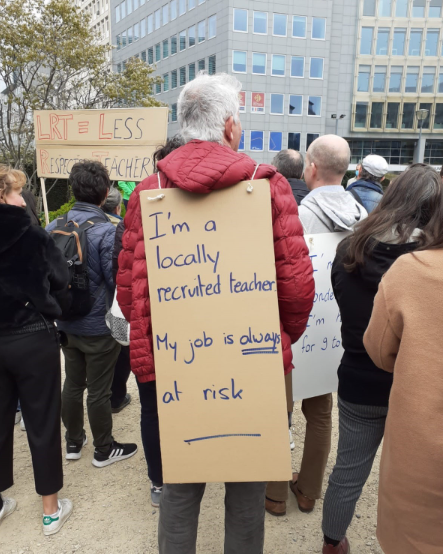 LRT = LESS
RESPECTED TEACHERS
I'm a
locally
recruited teacher
My job is always
at risk
I'm
I'm
for 9 to